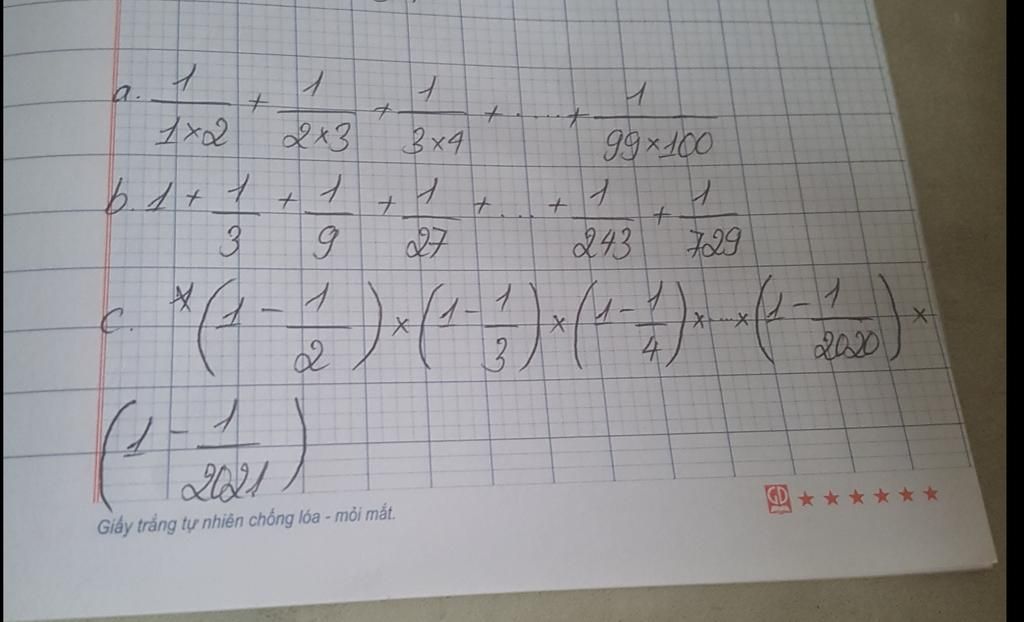 a. 1/(1×2) + 1/(2×3) + 1/(3×4) + ..... + 1/(99×100)
b. 1 + 1/3 + 1/9 + 1/27 + ... + 1/243 + 1/729
c. *(1 - 1/2) × (1 - 1/3) × (1 - 1/4) × ... × (1 - 1/2020) ×
(1 - 1/2021)
GD
Giấy trắng tự nhiên chống lóa - mỏi mắt.